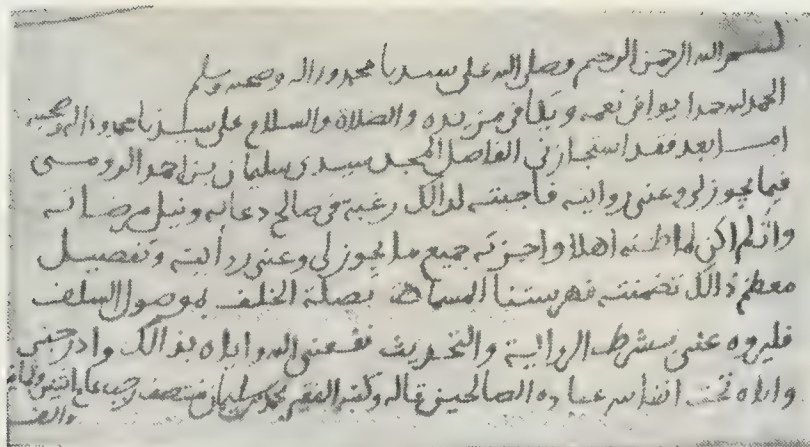 بسم الله الرحمن الرحيم وصلى الله على سيدنا محمد واله وصحبه وسلم
الحمد لله حمدا يوافى نعمه ويكافى مزيده والصلاة والسلام على سيدنا محمد واله وصحبه
امـا بعد فقد استجازنى الفاضل المجد سيدى سليمان بن احمد الرومـى
فيما يجوز لى وعنى روايته فاجبته لذالك رغبة فى صالح دعائه ونيل مرضاته
وان لم اكن لما ظنه اهلا واجزته جميع ما يجوز لى وعنى روايته وتفصيل
معظم ذالك تضمنته فهرستنا المسماة بصلة الخلف بموصول السلف
فليروه عنى بشرط الرواية والتحديث نفعنى الله واياه بذالك وادرجنى
واياه تحت انفاس عباده الصالحين قاله وكتبه الفقير محمد بن سليمان منتصف رجب عام اثنين وثمانين
والف